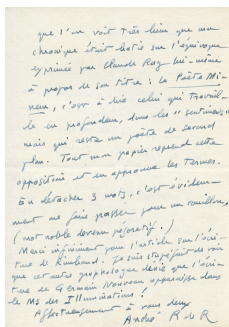 que l'on voit très bien que mon
chronique était bâtie sur l'équivoque
exprimée par Claude Roy lui-même
à propos de son titre : le Poète Mi-
neur, c'est à dire celui qui travail-
le en profondeur, dans les "
mais qui reste un poète de second
plan. Tout mon papier reprend cette
opposition et en approuve les termes.
En détacher 3 mots, c'est évidem-
ment me faire passer pour un couillon,
(mot noble devenu péjoratif.)
Merci infiniment pour l'article sur l'écri-
ture de Rimbaud. Je suis stupéfait de voir
que cet autre graphologue dénie que l'écri-
ture de Germain Nouveau apparaisse dans
le MS des Illuminations !
Affectueusement à vous deux
André R de R